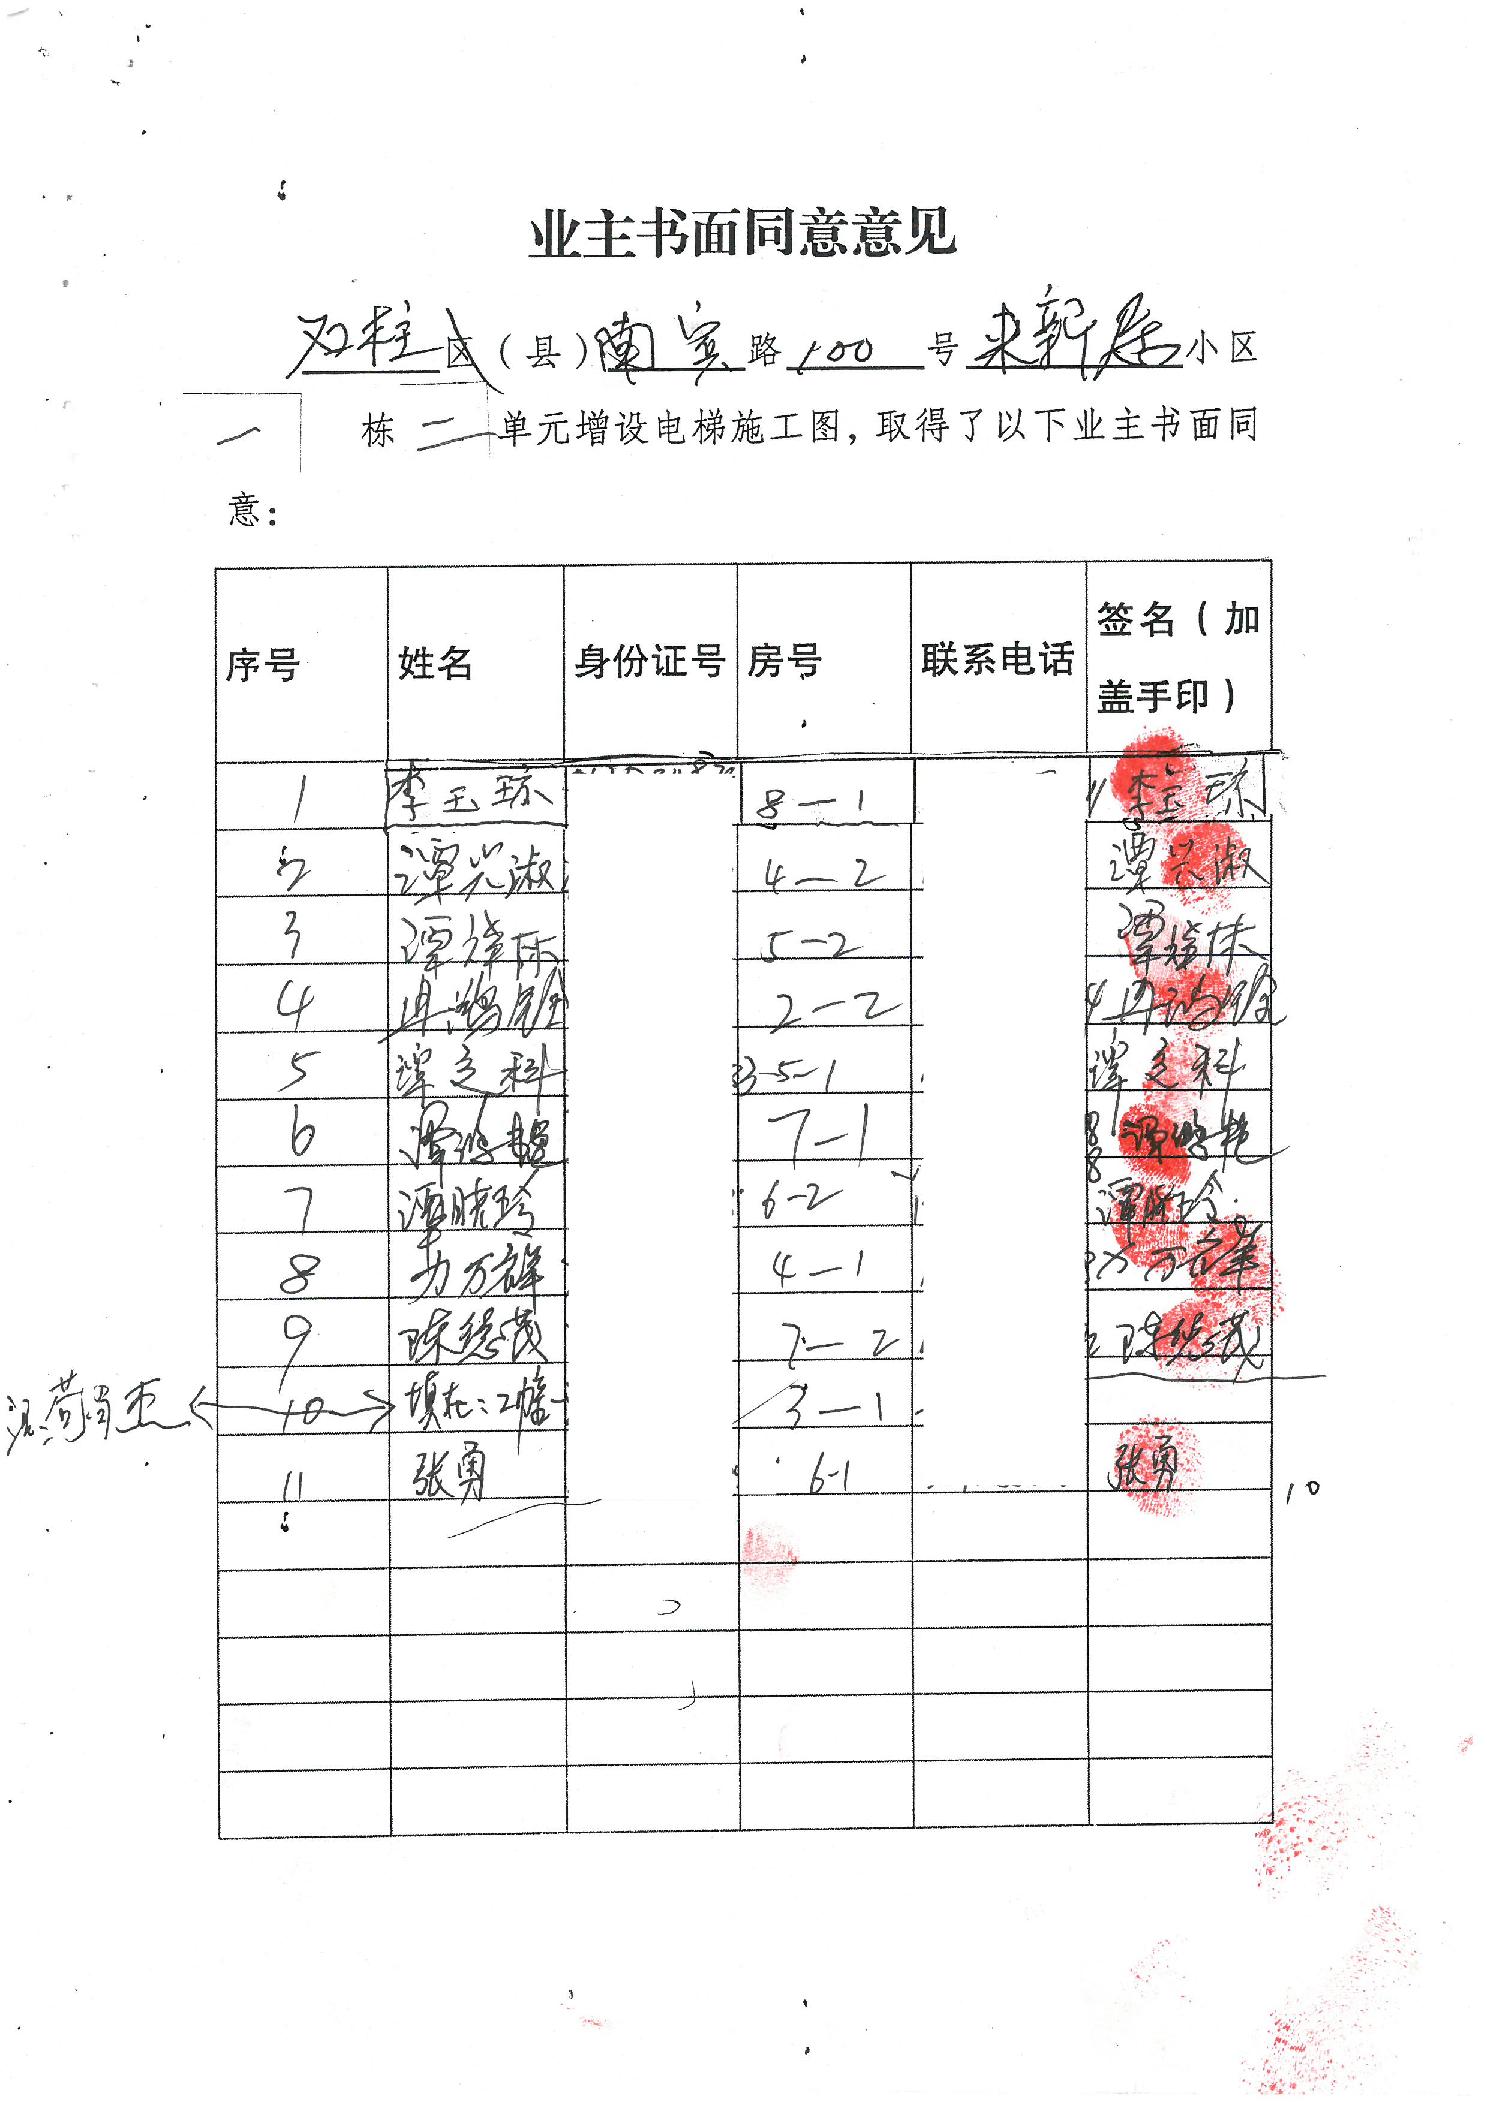 业主书面同意意见
石柱区（县）南宾路100号来新居小区
一栋二单元增设电梯施工图，取得了以下业主书面同
意：
序号 姓名 身份证号 房号 联系电话 签名（加盖手印）
1 李玉琼 8-1 李玉琼
2 谭兴淑 4-2 谭兴淑
3 谭 5-2 谭
4 冉鸿 2-2 冉鸿
5 谭定科 3-5-1 谭定科
6 谭 7-1 谭
7 谭晓玲 6-2 谭晓玲
8 万 4-1 万
9 陈德茂 7-2 陈德茂
10 3-1
11 张勇 6-1 张勇 10